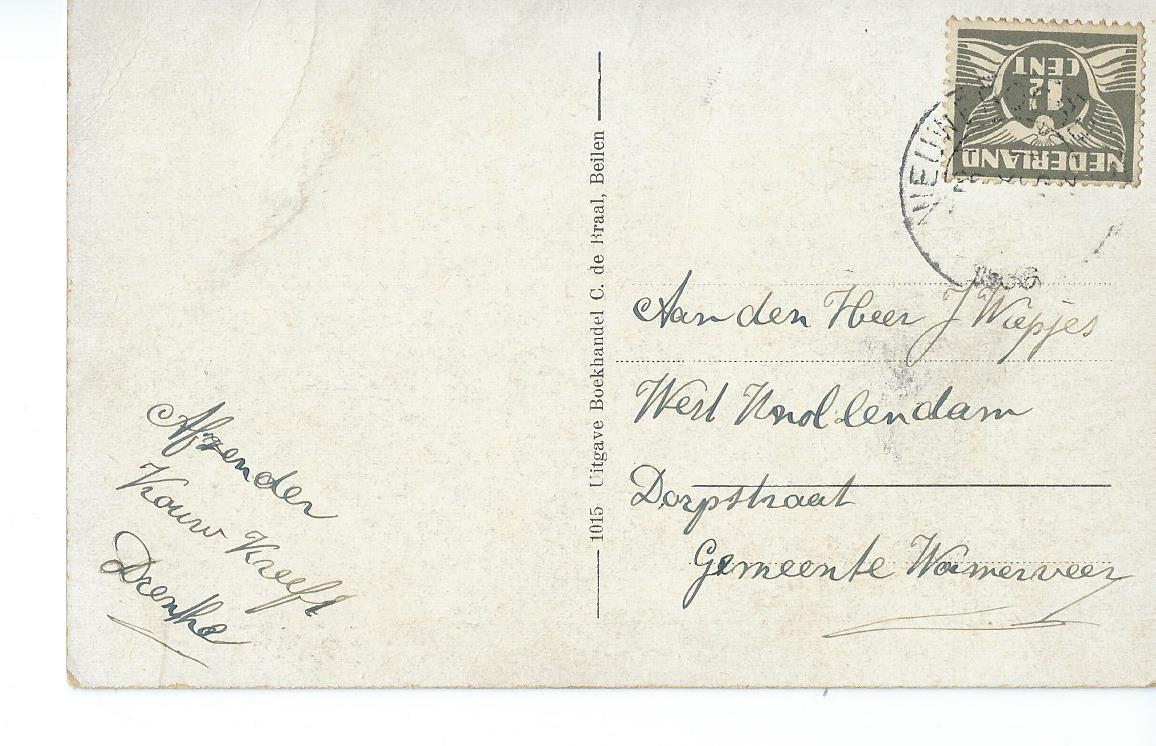 NEDERLAND
1½
CENT
1936
Aan den Heer J Wiepjes
West Knollendam
Dorpstraat
Gemeente Wormerveer
1015 Uitgave Boekhandel C. de Braal, Beilen
Afzender
Kouw Kreeft
Drenthe